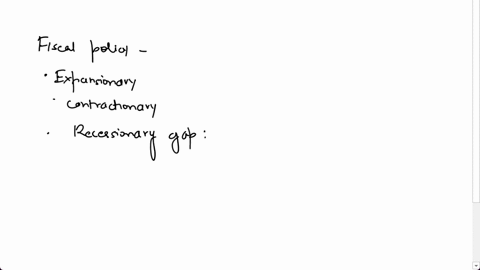 Fiscal policy -
· Expansionary
· contractionary
· Recessionary gap :